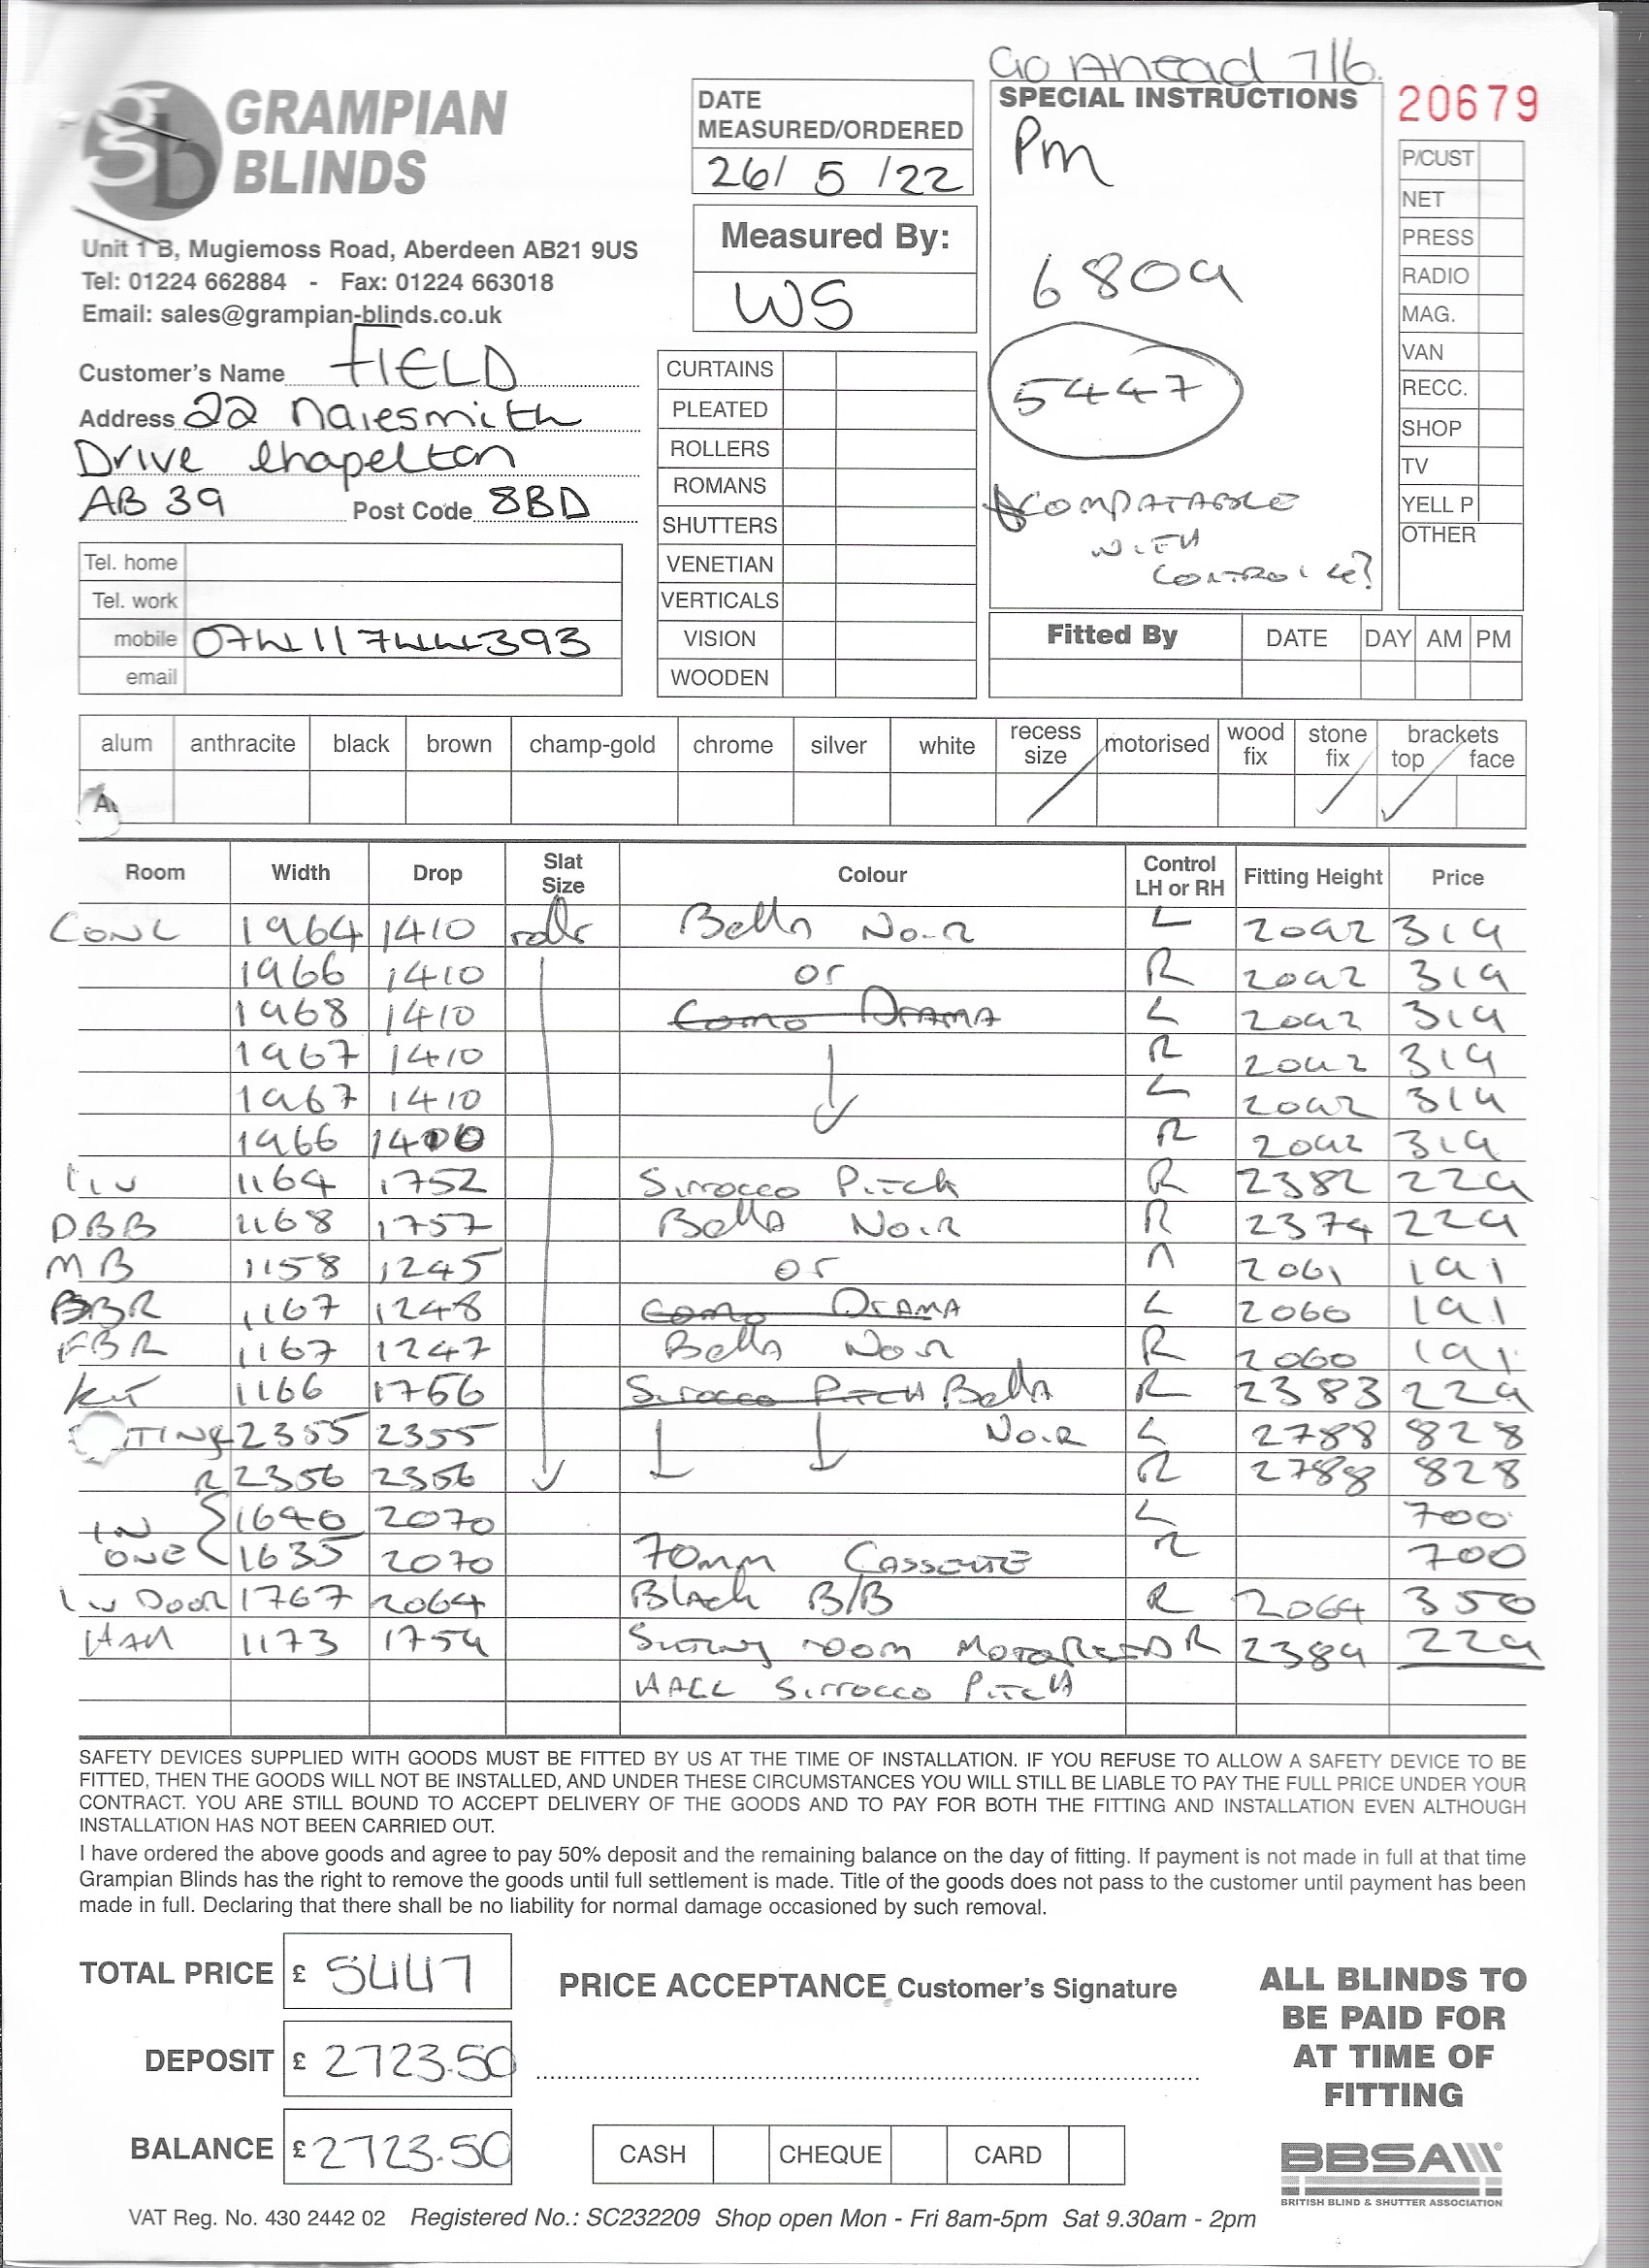 Go Ahead 7/6.
GRAMPIAN
BLINDS
Unit 1 B, Mugiemoss Road, Aberdeen AB21 9US
Tel: 01224 662884 - Fax: 01224 663018
Email: sales@grampian-blinds.co.uk
DATE
MEASURED/ORDERED
26/ 5 /22
Measured By:
WS
SPECIAL INSTRUCTIONS
Pm
6809
5447
COMPATABLE
WITH
CONTROL 4?
20679
P/CUST
NET
PRESS
RADIO
MAG.
VAN
RECC.
SHOP
TV
YELL P
OTHER
Customer's Name FIELD
Address 22 Naiesmith
Drive Chapelton
AB39 Post Code 8BD
Tel. home
Tel. work
mobile 07411744393
email
CURTAINS
PLEATED
ROLLERS
ROMANS
SHUTTERS
VENETIAN
VERTICALS
VISION
WOODEN
Fitted By DATE DAY AM PM
alum anthracite black brown champ-gold chrome silver white recess size motorised wood fix stone fix brackets top face
Room Width Drop Slat Size Colour Control LH or RH Fitting Height Price
1964 1410 Bella Noir L 2092 319
1966 1410 or R 2092 319
1968 1410 Como Drama L 2092 319
1967 1410 R 2092 319
1967 1410 L 2092 319
1966 1400 R 2092 319
Liv 1164 1752 Sirrocco Pitch R 2382 229
DBB 1168 1757 Bella Noir R 2374 229
MB 1158 1245 or 2061 191
BBR 1167 1248 Como Drama L 2060 191
FBR 1167 1247 Bella Noir R 2060 191
Kit 1166 1756 Sirocco PITCH Bella R 2383 229
2355 2355 Noir L 2788 828
R 2356 2356 R 2788 828
IN 1640 2070 L 700
ONE 1635 2070 70mm CASSETTE R 700
Liv Door 1767 2064 Black B/B R 2064 350
HAll 1173 1759 Sitting room MOTORISED R 2389 229
HALL SIRROCCO PITCH
SAFETY DEVICES SUPPLIED WITH GOODS MUST BE FITTED BY US AT THE TIME OF INSTALLATION. IF YOU REFUSE TO ALLOW A SAFETY DEVICE TO BE
FITTED, THEN THE GOODS WILL NOT BE INSTALLED, AND UNDER THESE CIRCUMSTANCES YOU WILL STILL BE LIABLE TO PAY THE FULL PRICE UNDER YOUR
CONTRACT. YOU ARE STILL BOUND TO ACCEPT DELIVERY OF THE GOODS AND TO PAY FOR BOTH THE FITTING AND INSTALLATION EVEN ALTHOUGH
INSTALLATION HAS NOT BEEN CARRIED OUT.
I have ordered the above goods and agree to pay 50% deposit and the remaining balance on the day of fitting. If payment is not made in full at that time
Grampian Blinds has the right to remove the goods until full settlement is made. Title of the goods does not pass to the customer until payment has been
made in full. Declaring that there shall be no liability for normal damage occasioned by such removal.
TOTAL PRICE £ 5447
DEPOSIT £ 2723.50
BALANCE £ 2723.50
PRICE ACCEPTANCE Customer's Signature
CASH CHEQUE CARD
ALL BLINDS TO
BE PAID FOR
AT TIME OF
FITTING
BBSA
BRITISH BLIND & SHUTTER ASSOCIATION
VAT Reg. No. 430 2442 02 Registered No.: SC232209 Shop open Mon - Fri 8am-5pm Sat 9.30am - 2pm